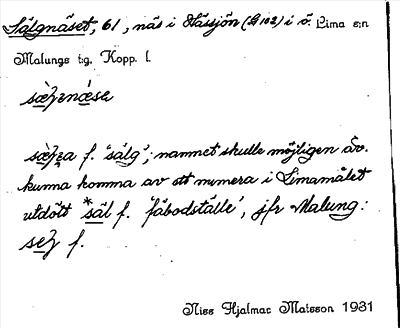 Sälgnäset, 61, näs i Hässjön (G 102) i ö. Lima s:n
Malungs t:g. Kopp. l.
sæ̀ɽznǽsə
sæ̀ɽʒa f. "sälg"; namnet skulle möjligen äv.
kunna komma av ett numera i Limamålet
utdött *säl f. 'fäbodställe', jfr Malung:
seɽ f.
Niss Hjalmar Matsson 1931